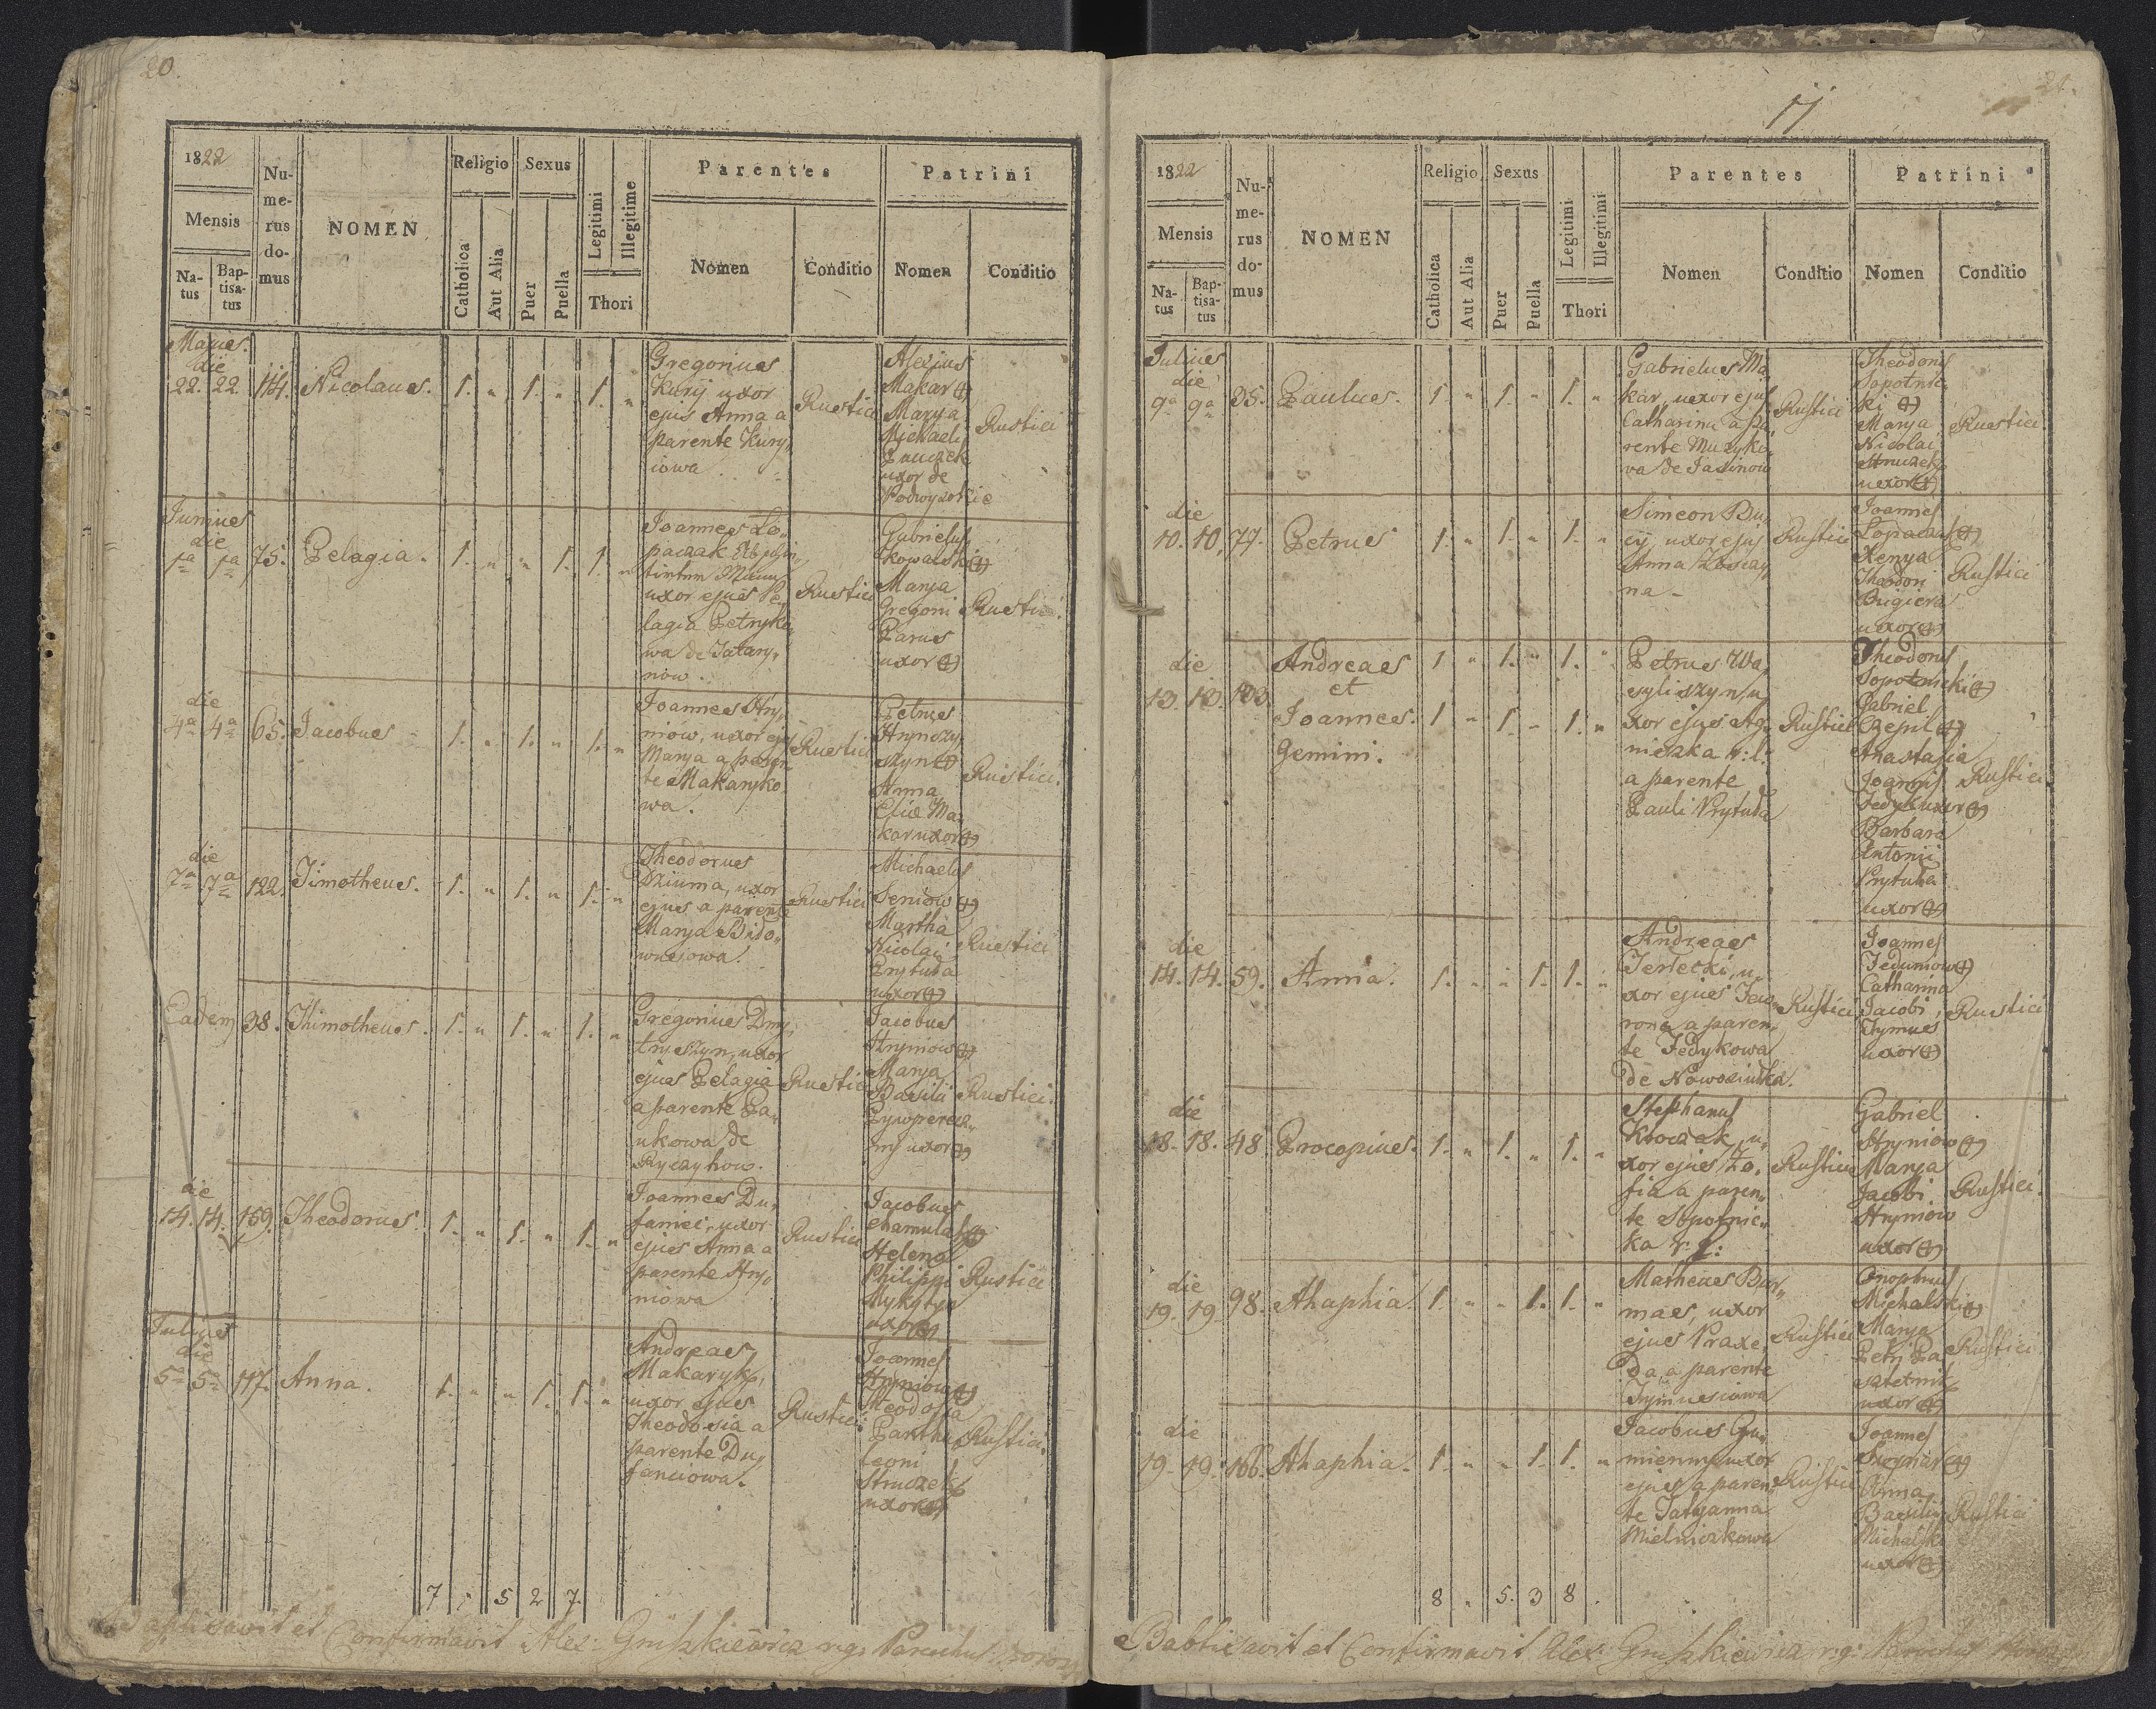 20.
1822
Mensis
Na-
tus
Bap-
tisa-
tus
Nu-
me-
rus
do-
mus
NOMEN
Religio
Catholica
Aut Alia
Sexus
Puer
Puella
Legitimi
Illegitime
Thori
Parentes
Nomen
Conditio
Patrini
Nomen
Conditio
die
22. 22. 114. Nicolaus. 1. " 1. " 1. "
Gregorius
Kuryj uxor
ejus Anna a
parente Kury„
iowa.
Rustici
Alexius
Makar
Marya
Michaeli
uxor de
Podwysokie
Rustici
Junius
die
1a 1a 75. Pelagia. 1. " " 1. 1. "
Joannes Lo„
paczak
uxor ejus Pe„
lagia Petryko„
wa de Tatary„
now.
Rustici
Gabrielus
Kowalski
Marya
Gregorii
Parus
uxor
Rustici
die
4a 4a 65. Jacobus 1. " 1. " 1. "
Joannes Hry„
niow, uxor ejus
Marya a paren„
te Makaryko
wa.
Rustici
Petrus
Hrynczy
szyn
Anna
Eliæ Ma„
kar uxor
Rustici.
die
7a 7a 122. Timotheus. 1. " 1. " 1. "
Theodorus
Dziuma, uxor
ejus a parente
Marya Bido„
wusowa.
Rustici
Michaelus
Seniow
Martha
Nicolai
Prytuła
uxor
Rustici
Eadem 38. Thimotheus. 1. " 1. " 1. "
Gregorius Dmy„
tryszyn, uxor
ejus Pelagia
a parente Pa„
ukowa de
Ryczychow.
Rustici
Jacobus
Hryniow
Marya
Basilii
uxor
Rustici.
die
14. 14. 159. Theodorus. 1. " 1. " 1. "
Joannes Du„
faniec, uxor
ejus Anna a
parente Hry„
niowa
Rustici
Jacobus
Chamula
Helena
Philippi
Mykytyn
uxor
Rustici
Julius
die
5a 5a 117. Anna. 1. " " 1. 1. "
Andreas
Makaryk,
uxor ejus
Theodosia a
parente Du„
fanciowa.
Rustici
Joannes
Hryniow
Theodosia
Leoni
Struczek
uxor
Rustici.
7 " 5 2 7.
Baptisavit et Confirmavit Alex: Gruszkiewicz rg: Parochus
21.
17
1822
Mensis
Na-
tus
Bap-
tisa-
tus
Nu-
me-
rus
do-
mus
NOMEN
Religio
Catholica
Aut Alia
Sexus
Puer
Puella
Legitimi
Illegitimi
Thori
Parentes
Nomen
Conditio
Patrini
Nomen
Conditio
Julius
die
9a 9a 35. Paulus. 1. " 1. " 1. "
Gabrielus Ma„
kar, uxor ejus
Catharina a pa„
rente Muzyko„
wa de Jasinow
Rustici
Theodorus
Sopotnic
ki
Marya
Nicolai
Struczek
uxor
Rustici.
die
10. 10. 77. Petrus 1. " 1. " 1. "
Simeon Bu„
cij, uxor ejus
Anna
na -
Rustici
Joannes
Lopaczak
Xenya
Theodori
Bugiera
uxor
Rustici
die
13. 13. 103. Andreas 1 " 1. " 1. "
et
Joannes. 1 " 1 " 1. "
Gemini.
Petrus Wa„
syliszyn, u„
xor ejus Ag„
nieszka r: l:
a parente
Pauli Prytuła
Rustici
Theodorus
Sopotnicki
Gabriel
Czepil
Anastasia
Joannis
Fedyk uxor
Barbara
Antonii
Prytuła
uxor
Rustici.
die
14. 14. 59. Anna. 1. " " 1. 1. "
Andreas
Terlecki, u„
xor ejus Jew„
rona a paren„
te Fedykowa
de Nowosiulka.
Rustici
Joannes
Feduniow
Catharina
Jacobi
Tymus
uxor
Rustici
die
18. 18. 48. Procopius. 1. " 1. " 1. "
Stephanus
u„
xor ejus Zo„
fia a paren„
te Sopotnic„
ka r: l:
Rustici
Gabriel
Hryniow
Marya
Jacobi
Hryniow
uxor
Rustici.
die
19. 19. 98. Ahaphia. 1. " " 1. 1. "
Matheus Bur„
mas, uxor
ejus Praxe„
da, a parente
Tymusiowa
Rustici
Onophrius
Michalski
Marya
Petri
uxor
Rustici
die
19. 19. 166. Ahaphia. 1. " " 1. 1. "
Jacobus Gu„
mienny uxor
ejus a paren„
te Tatyanna
Mielniczkowa
Rustici
Joannes
Anna
Basilii
Michalski
uxor
Rustici
8 " 5. 3 8 "
Babtisavit et Confirmavit Alex: Gruszkiewicz rg: Parochus